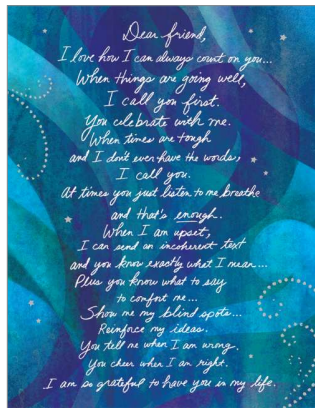 Dear friend,
I love how I can always count on you...
When things are going well,
I call you first.
You celebrate with me.
When times are tough
and I don't even have the words,
I call you.
At times you just listen to me breathe
and that's enough.
When I am upset,
I can send an incoherent text
and you know exactly what I mean...
Plus you know what to say
to comfort me...
Show me my blind spots...
Reinforce my ideas.
You tell me when I am wrong.
You cheer when I am right.
I am so grateful to have you in my life.